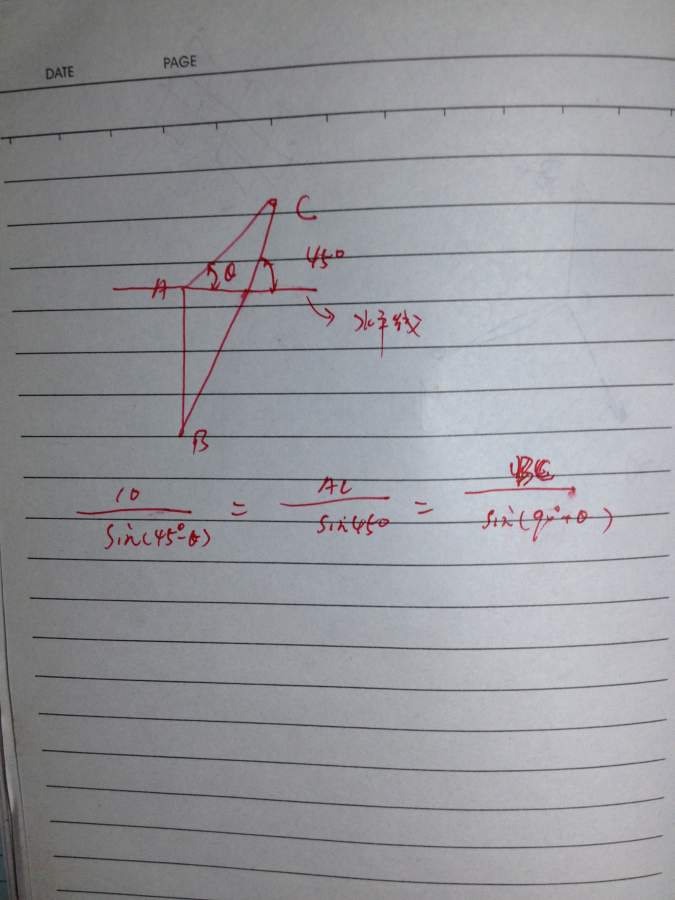 DATE PAGE
C
A θ 45°
水平线
B
10 / sin(45°-θ) = AC / sin45° = BC / sin(90°+θ)